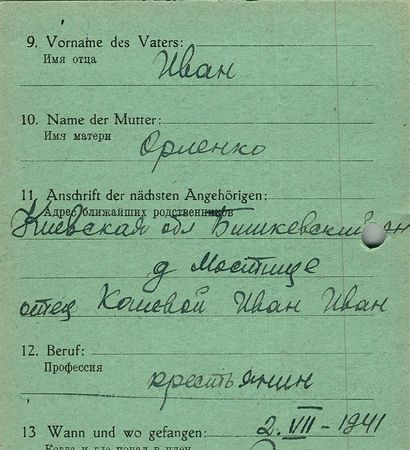 9. Vorname des Vaters:
Имя отца
Иван
10. Name der Mutter:
Имя матери
Орленко
11 Anschrift der nächsten Angehörigen:
Адрес ближайших родственников
Киевская обл Бишкевский
д Мостище
отец Кошевой Иван Иван
12. Beruf:
Профессия
крестьянин
13 Wann und wo gefangen:
2. VII - 1941
Когда и где попал в плен